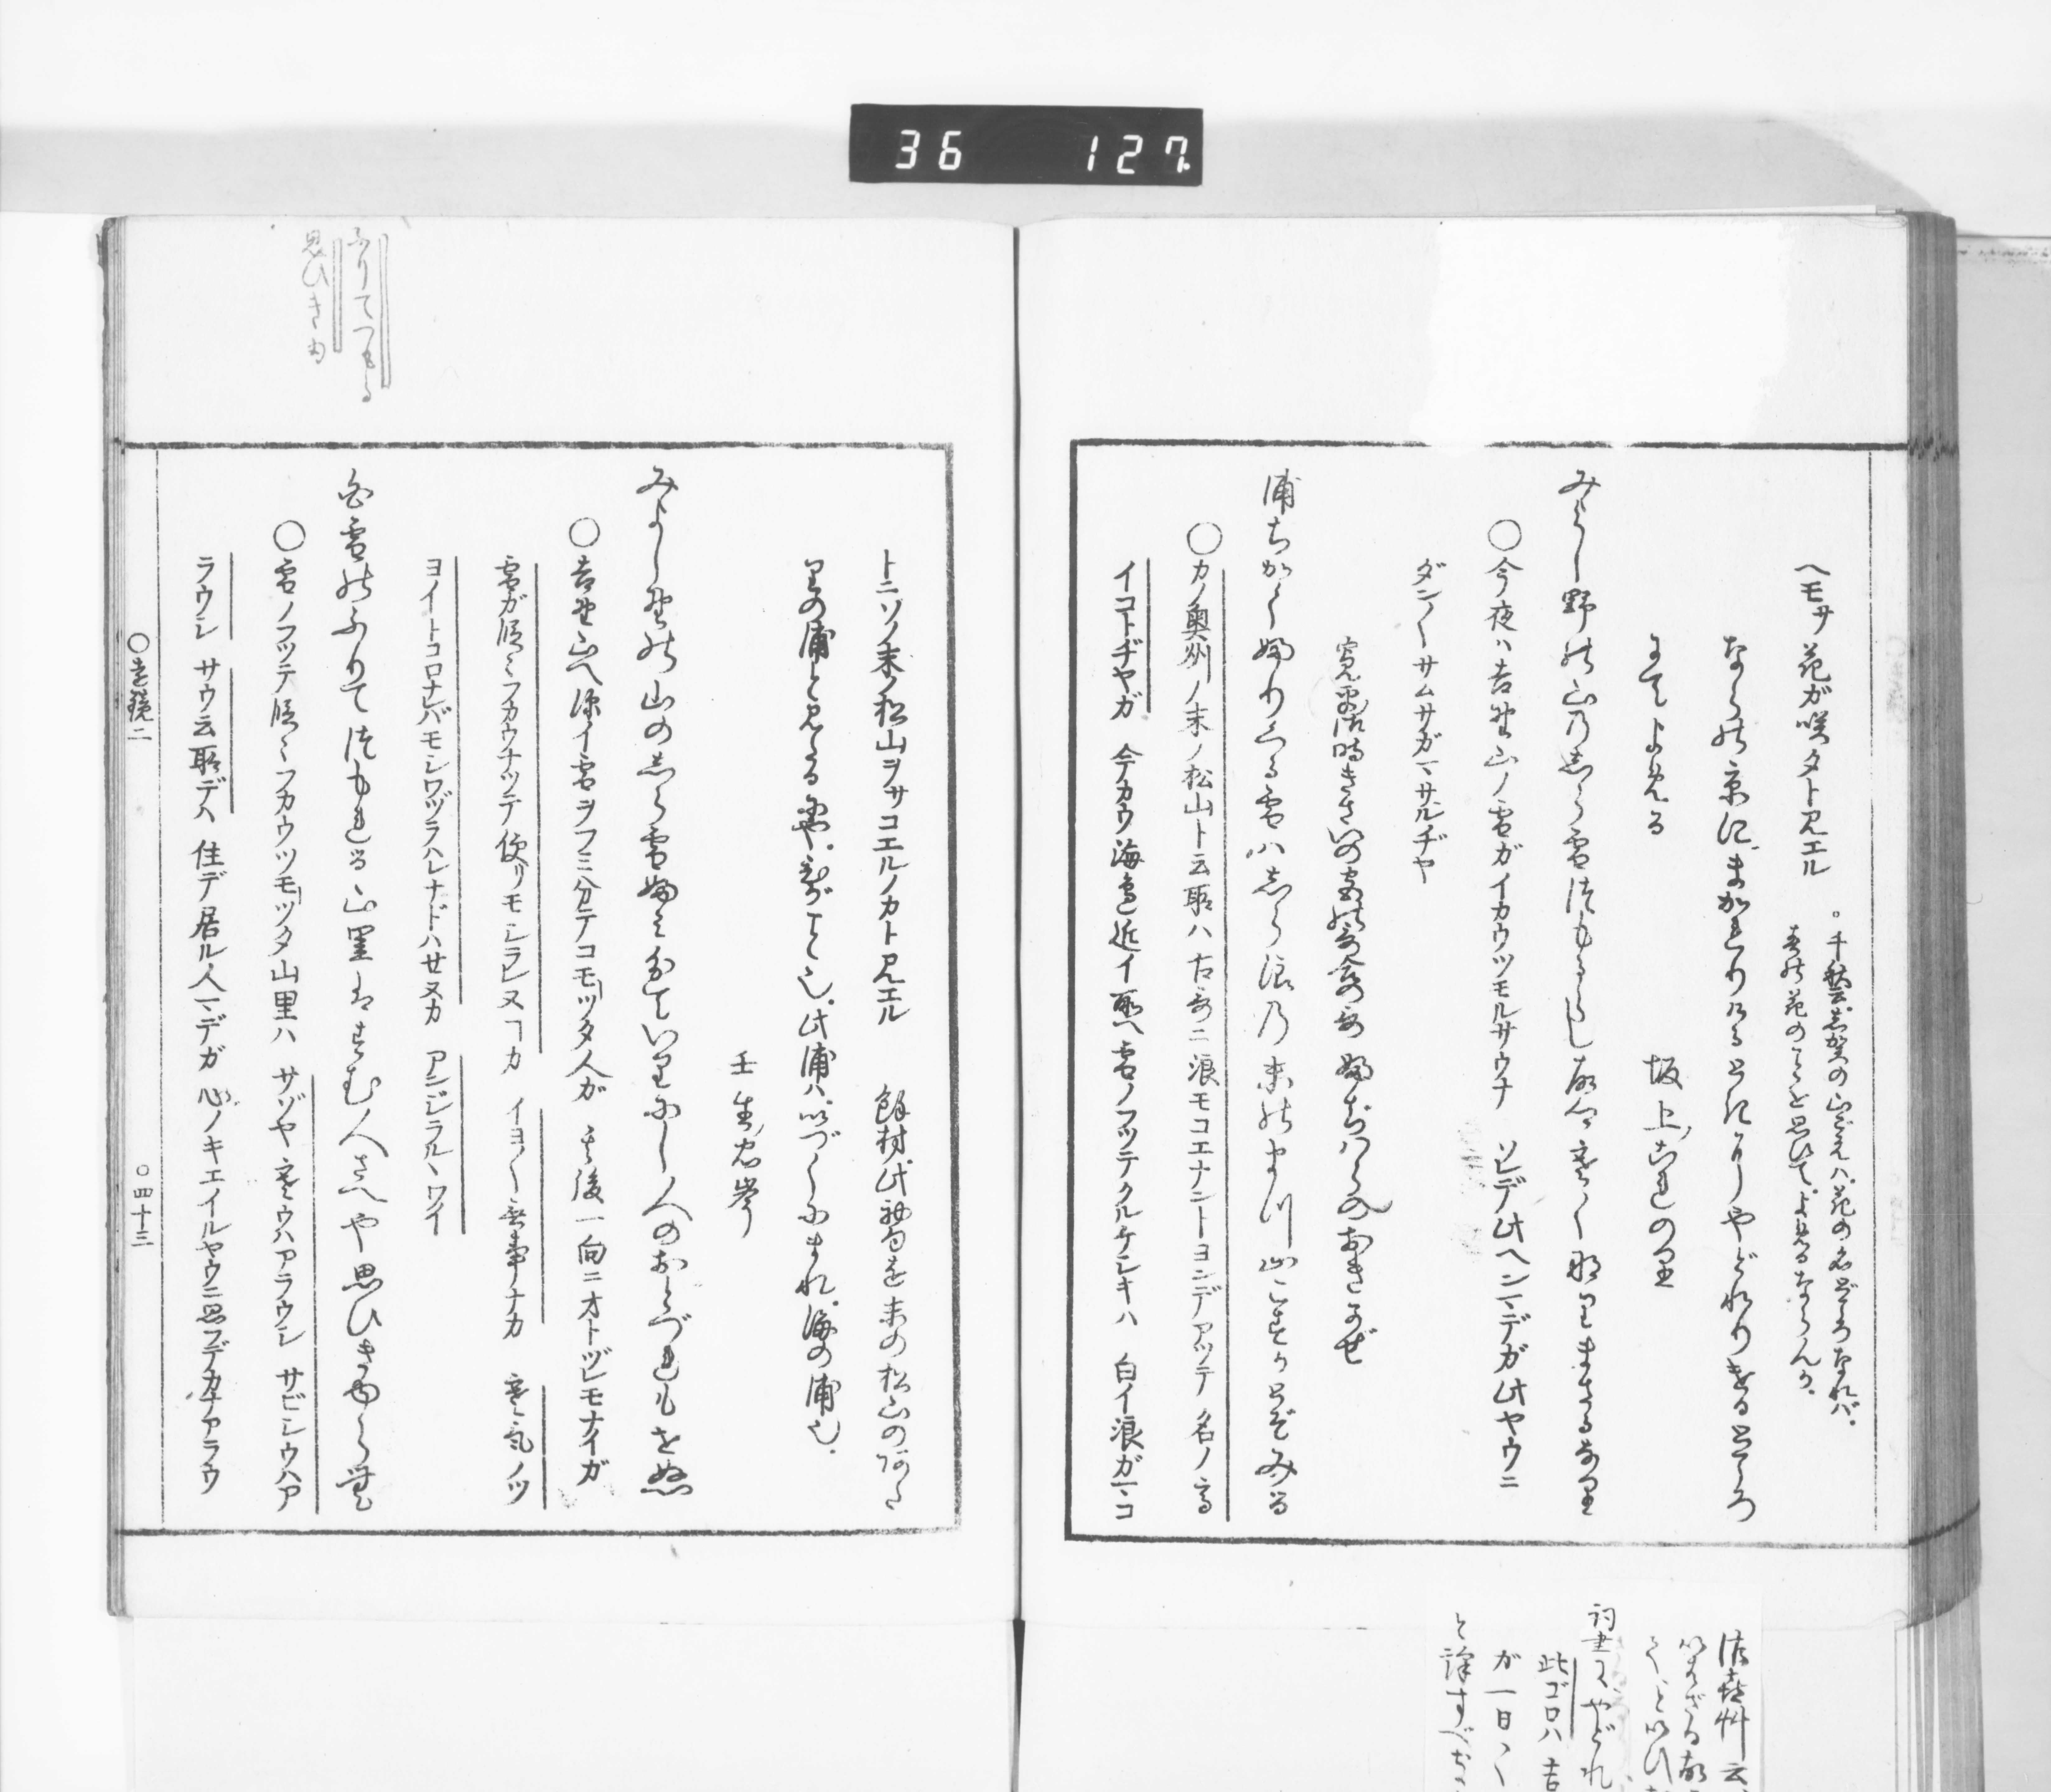 36 127
ヘモサ 花ガ咲タト見エル
。千秋云、志賀の山ごえハ、花の名どころなれバ、
春の花のことを思ひて、よめるならんか、
ならの京にまかれりける時にやどれりける所
にてよめる
坂上これのり
みよし野の山の白雪つもるらし故郷寒くなりまさるなり
○今夜ハ吉野山ノ雪ガイカウツモルサウナ ソレデ此ヘンマデガ此ヤウニ
ダン〱サムサガマサルヂヤ
寛平御時きさいの宮の歌合のうた 藤原のおきかぜ
浦ちかくふりくる雪ハ白浪の末の松山こすかとぞみる
○カノ奥州ノ末ノ松山ト云所ハ 古哥ニ浪モコエナントヨンデアッテ 名ノ高
イコトヂヤガ 今カウ海邊近イ所ヘ雪ノフッテクルケシキハ 白イ浪ガマコ
トニソノ末ノ松山ヲサコエルノカト見エル
餘材、此初句を末の松山のあた
りの浦と見たる
此浦ハ、いづくにまれ、海の浦也、
壬生忠岑
みよし野の山の白雪ふみ分ていりにし人のおとづれもせぬ
○吉野山ヘ深イ雪ヲフミ分テコモッタ人ガ 其後一向ニオトヅレモナイガ
雪ガ段々フカウナッテ 便リモシラレヌコカ イヨ〱無事ナカ 寒氣ノツ
ヨイトコロナレバモシワヅラハレナドハセヌカ アンジラルヽワイ
白雪のふりてつもれる山里はすむ人さへや思ひきゆらむ
○雪ノフッテ段々フカウツモッタ山里ハ サゾヤ寒ウハアラウシ サビシウハア
ラウシ サウ云所デハ 住デ居ル人マデガ 心ノキエイルヤウニ思フデカナアラウ
○遠鏡二
○四十三
ふりてつもる
思ひきゆ
詞書に、やどれ
此ゴロハ吉
ガ一日〱
と譯すべき